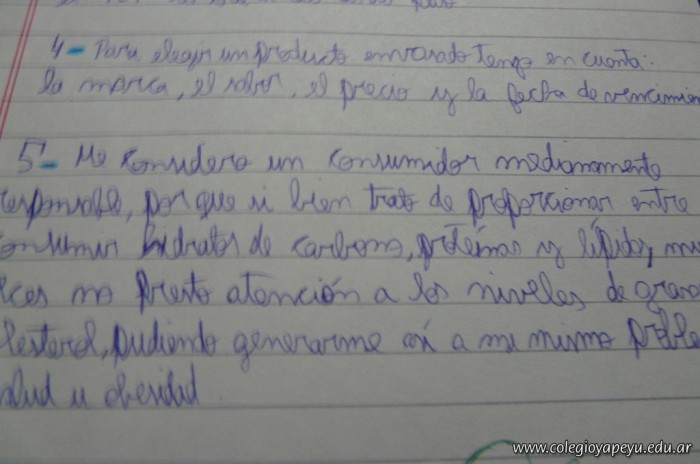 4- Para elegir un producto envasado tengo en cuenta:
la marca, el sabor, el precio y la fecha de vencimien
5- Me considero un consumidor medianamente
responsable, porque si bien trato de proporcionar entre
onsumir hidratos de carbono, proteínas y lípidos, mu
ces no presto atención a los niveles de grasa
lesterol, pudiendo generarme así a mi mismo proble
salud u obesidad.
www.colegioyapeyu.edu.ar